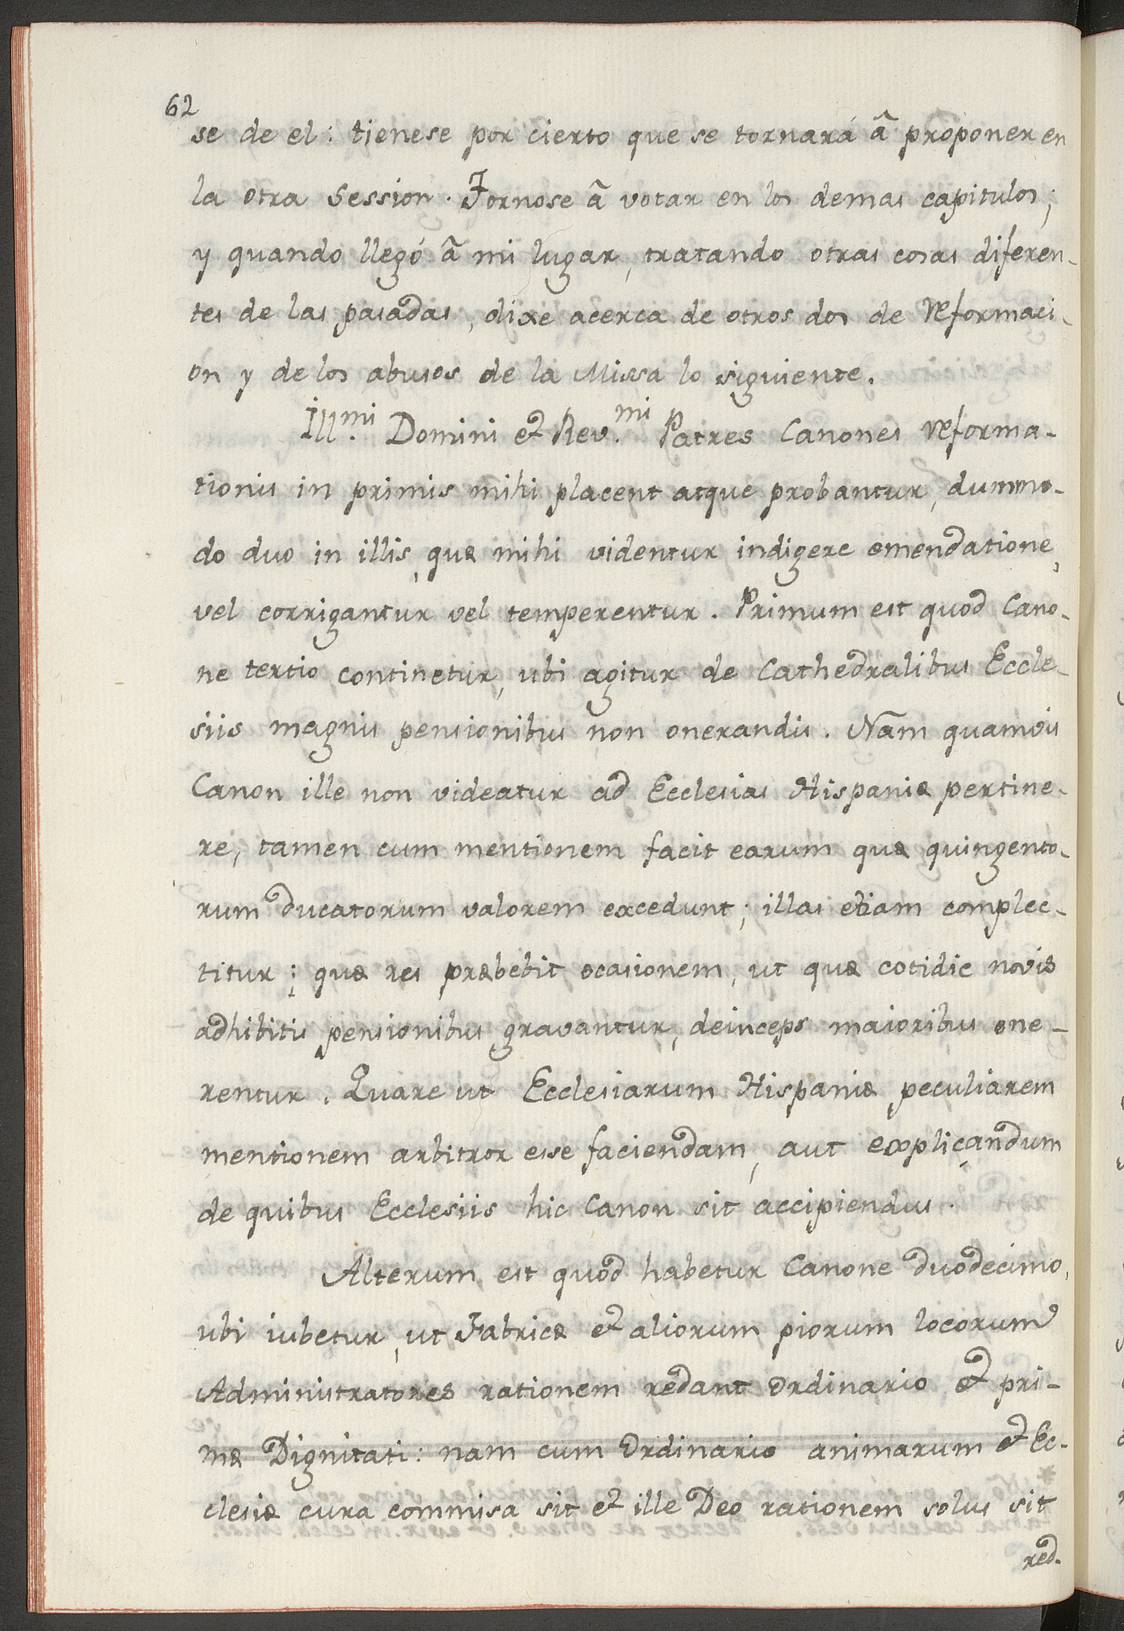 62
se de el: tienese por cierto que se tornará â proponer en
la otra Session. Tornose â votar en los demas capitulos,
y quando llegó â mi lugar, tratando otras cosas diferen-
tes de las pasadas, dixe acerca de otros dos de reformaci-
on y de los abusos de la Missa lo siguiente.
Ill.mi Domini et Rev.mi Patres Canones reforma-
tionis in primis mihi placent atque probantur, dummo-
do duo in illis, quæ mihi videntur indigere emendatione,
vel corrigantur vel temperentur. Primum est quod Cano-
ne tertio continetur, ubi agitur de Cathedralibus Eccle-
siis magnis pensionibus non onerandis. Nam quamvis
Canon ille non videatur ad Ecclesias Hispaniæ pertine-
re, tamen cum mentionem facit earum quæ quingento-
rum ducatorum valorem excedunt; illas etiam complec-
titur; quæ res præbebit ocasionem, ut quæ cotidie novis
adhibitis pensionibus gravantur, deinceps maioribus one-
rentur. Quare ut Ecclesiarum Hispaniæ peculiarem
mentionem arbitror esse faciendam, aut explicandum
de quibus Ecclesiis hic Canon sit accipiendus.
Alterum est quod habetur Canone duodecimo,
ubi iubetur, ut Fabricæ et aliorum piorum locorum
Administratores rationem redant Ordinario et pri-
mæ Dignitati: nam cum Ordinario animarum et Ec-
clesiæ cura commisa sit et ille Deo rationem solus sit
red.